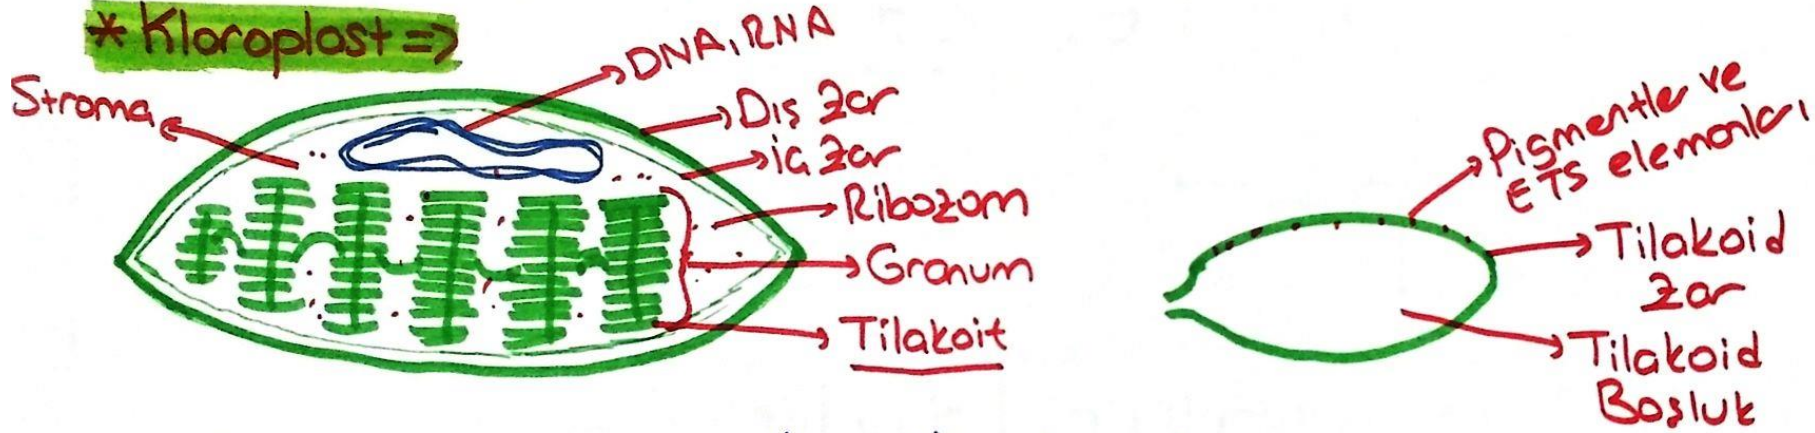 * Kloroplast =>
Stroma
DNA, RNA
Dış Zar
İç Zar
Ribozom
Granum
Tilakoit
Pigmentler ve
ETS elemanları
Tilakoid
Zar
Tilakoid
Boşluk